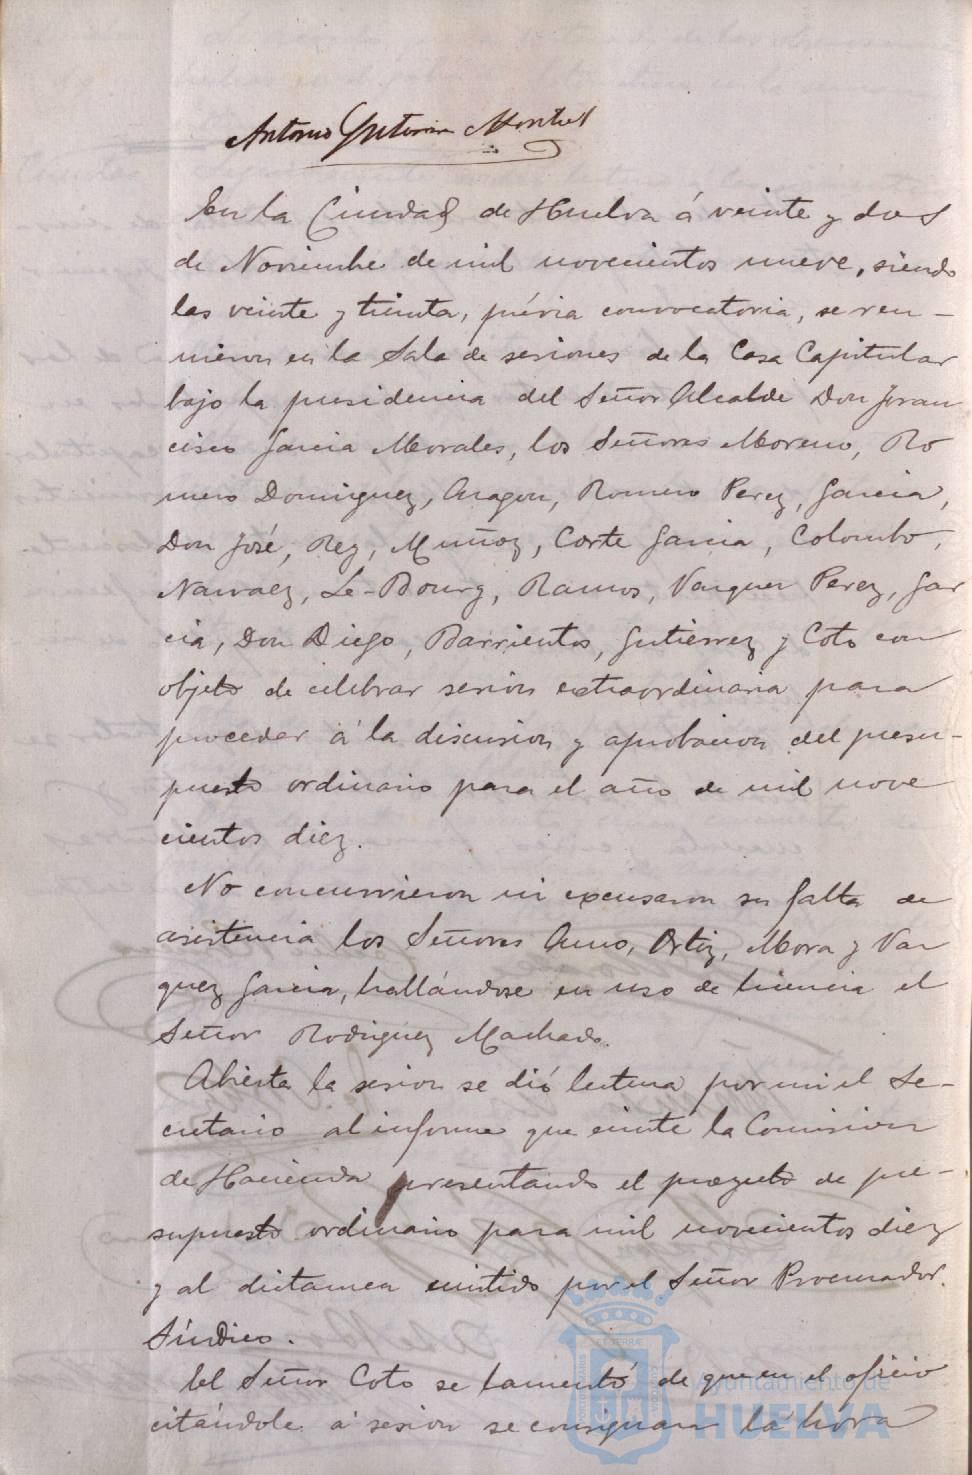 Antonio Gutierrez
En la Ciudad de Huelva á veinte y dos
de Noviembre de mil novecientos nueve, siendo
las veinte y treinta, prévia convocatoria, se reu-
nieron en la Sala de sesiones de la Casa Capitular
bajo la presidencia del Señor Alcalde Don Fran
cisco Garcia Morales, los Señores Moreno, Ro
mero Dominguez, Aragon, Romero Perez, Garcia,
Don José, Rey, Muñoz, Corte Garcia, Colombo,
Narvaez, Le-Bourg, Ramos, Vazquez Perez, Gar
cia, Don Diego, Barrientos, Gutiérrez y Coto con
objeto de celebrar sesion extraordinaria para
proceder á la discusion y aprobacion del presu-
puesto ordinario para el año de mil nove
cientos diez.
No concurrieron ni excusaron su falta de
asistencia los Señores Ortiz, Mora y Vaz
quez Garcia, hallándose en uso de licencia el
Señor Rodriguez Machado.
Abierta la sesion se dió lectura por mi el Se-
cretario al informe que emite la Comision
de Hacienda presentando el proyecto de pre-
supuesto ordinario para mil novecientos diez
y al dictamen emitido por el Señor Procurador
Síndico.
El Señor Coto se lamentó de que en el oficio
citándole á sesion se consignara la hora
Ayuntamiento de
HUELVA